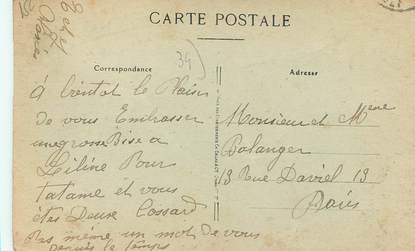 CARTE POSTALE
39
Correspondance
Adresse
á bientot le Plaisir
de vous Embrasser
une grosse Bise a
Liline Pour
tatame et vous
êtes Deux Cossard
Pas même un mot de vous
Depuis le temps
Monsieur et Mme
Bolanger
13 Rue Daviel 13
Paris